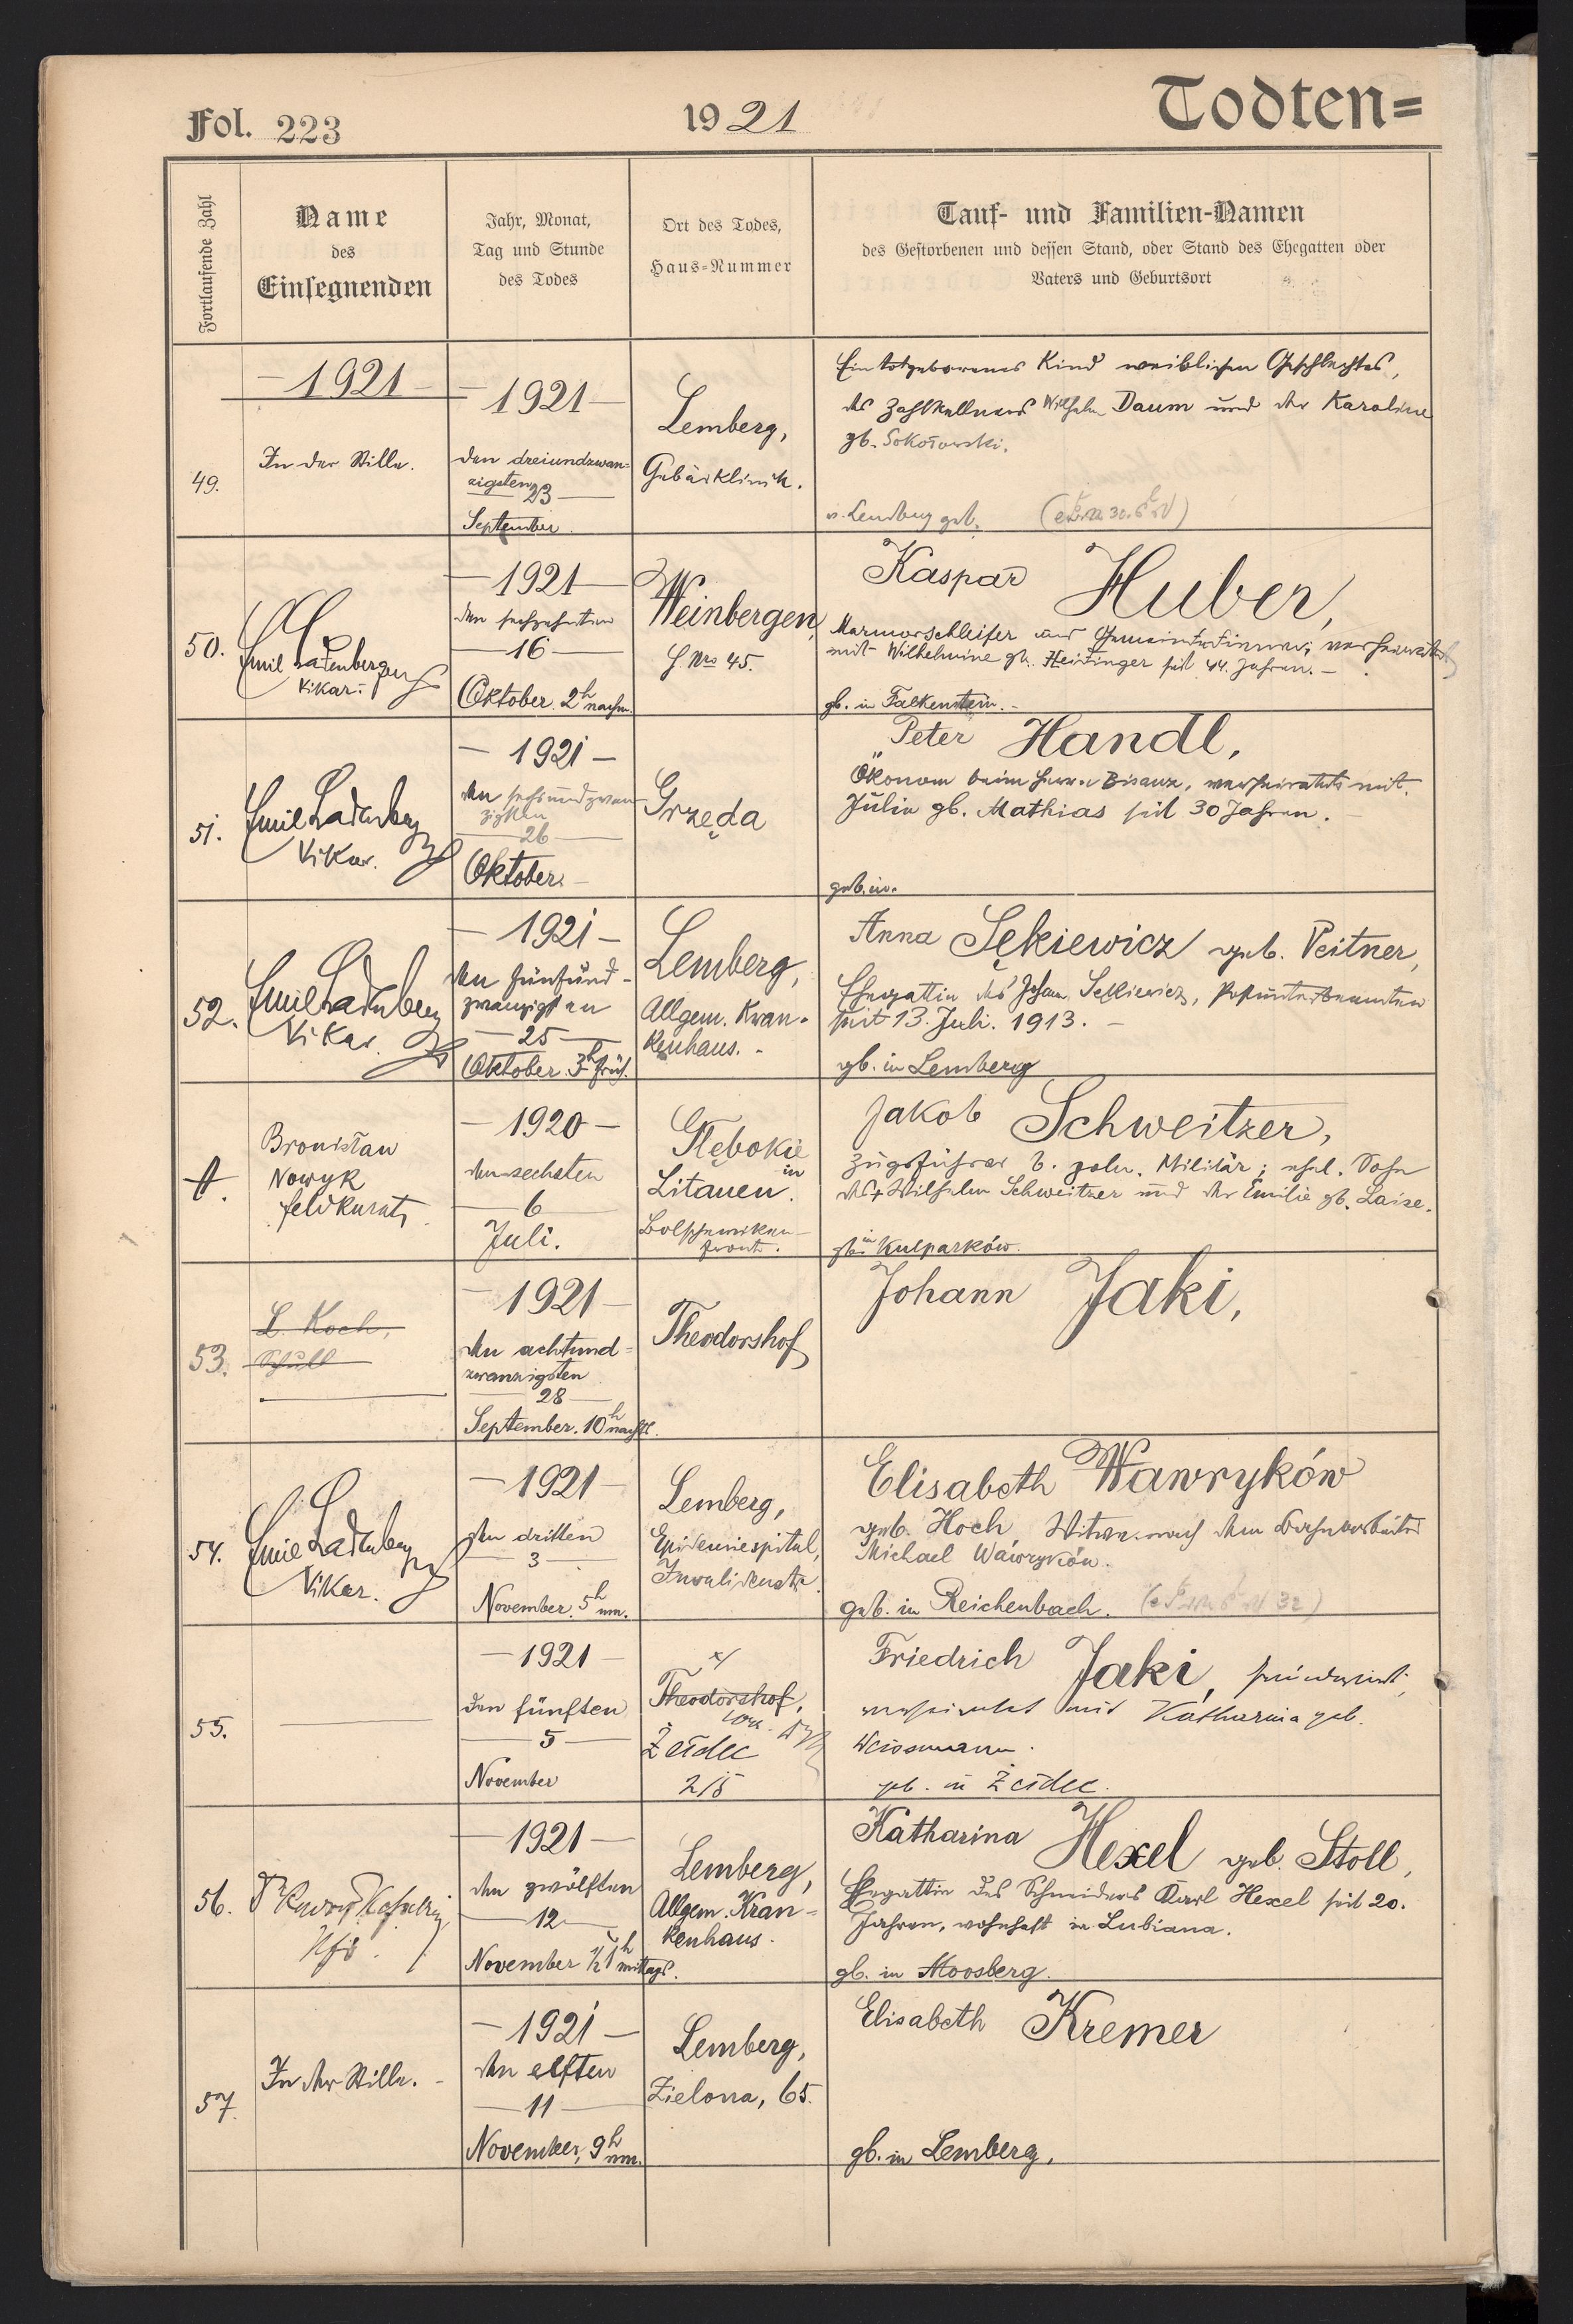 Fol. 223
1921
Todten=
Fortlaufende Zahl
Name
des
Einsegnenden
Jahr, Monat,
Tag und Stunde
des Todes
Ort des Todes,
Haus=Nummer
Tauf- und Familien-Namen
des Gestorbenen und dessen Stand, oder Stand des Ehegatten oder
Vaters und Geburtsort
49.
— 1921 —
In der Stille.
— 1921 —
den dreiundzwan=
zigsten
23 —
September
Lemberg,
Gebärklinik.
Ein totgeborenes Kind weiblichen Geschlechtes,
des Zahlkellners Wilhelm Daum und der Karoline
gb. Sokołowski.
in Lemberg geb.
50.
Emil Ladenberger
Vikar.
— 1921 —
den sechzehnten
— 16 —
Oktober 2h nachm.
Weinbergen,
H. Nro 45.
Kaspar Huber,
Marmorschleifer und Gemeindediener, verheiratet
mit Wilhelmine gb. Heidinger seit 44. Jahren. —
gb. in Falkenstein. —
51.
Emil Ladenberger
Vikar.
— 1921 —
den sechsundzwan=
zigsten
— 26 —
Oktober. —
Grzęda
Peter Handl,
Ökonom beim Herrn Bisanz, verheiratet mit
Julie gb. Mathias seit 30 Jahren. —
geb. in.
52.
Emil Ladenberger
Vikar.
— 1921 —
den fünfund=
zwanzigsten
— 25 —
Oktober. 3h früh.
Lemberg,
Allgem. Kran=
kenhaus. —
Anna Sękiewicz geb. Peitner,
Ehegattin des Johann Sękiewicz,
seit 13. Juli. 1913. —
gb. in Lemberg
Bronisław
Nowyk
Feldkurat.
— 1920 —
den sechsten
— 6 —
Juli.
Głębokie
in
Litauen.
Bolschewiken=
front.
Jakob Schweitzer,
Zugsführer b. poln. Militär; ehel. Sohn
des + Wilhelm Schweitzer und der Emilie gb. Laise.
gb. in Kulparków.
53.
L. Koch,
— 1921 —
den achtund=
zwanzigsten
— 28 —
September. 10h nachts.
Theodorshof
Johann Jaki,
54.
Emil Ladenberger
Vikar.
— 1921 —
den dritten
— 3 —
November. 5h nm.
Lemberg,
Epidemiespital,
Elisabeth Wawryków
geb. Hoch, Witwe nach dem Bahnarbeiter
Michael Wawryków.
geb. in Reichenbach.
55.
— 1921 —
den fünften
— 5 —
November
Theodorshof,
Żeldec
215
Friedrich Jaki,
verheiratet mit Katharina geb.
Weissmann.
geb. in Żeldec.
56.
— 1921 —
den zwölften
— 12 —
November ½1h mittags.
Lemberg,
Allgem. Kran=
kenhaus.
Katharina Hexel geb. Stoll,
Ehegattin des Schneiders Karl Hexel seit 20.
Jahren, wohnhaft in Lubiana.
gb. in Moosberg.
57.
In der Stille. —
— 1921 —
den elften
— 11 —
November, 9h nm.
Lemberg,
Zielona, 65.
Elisabeth Kremer
gb. in Lemberg.